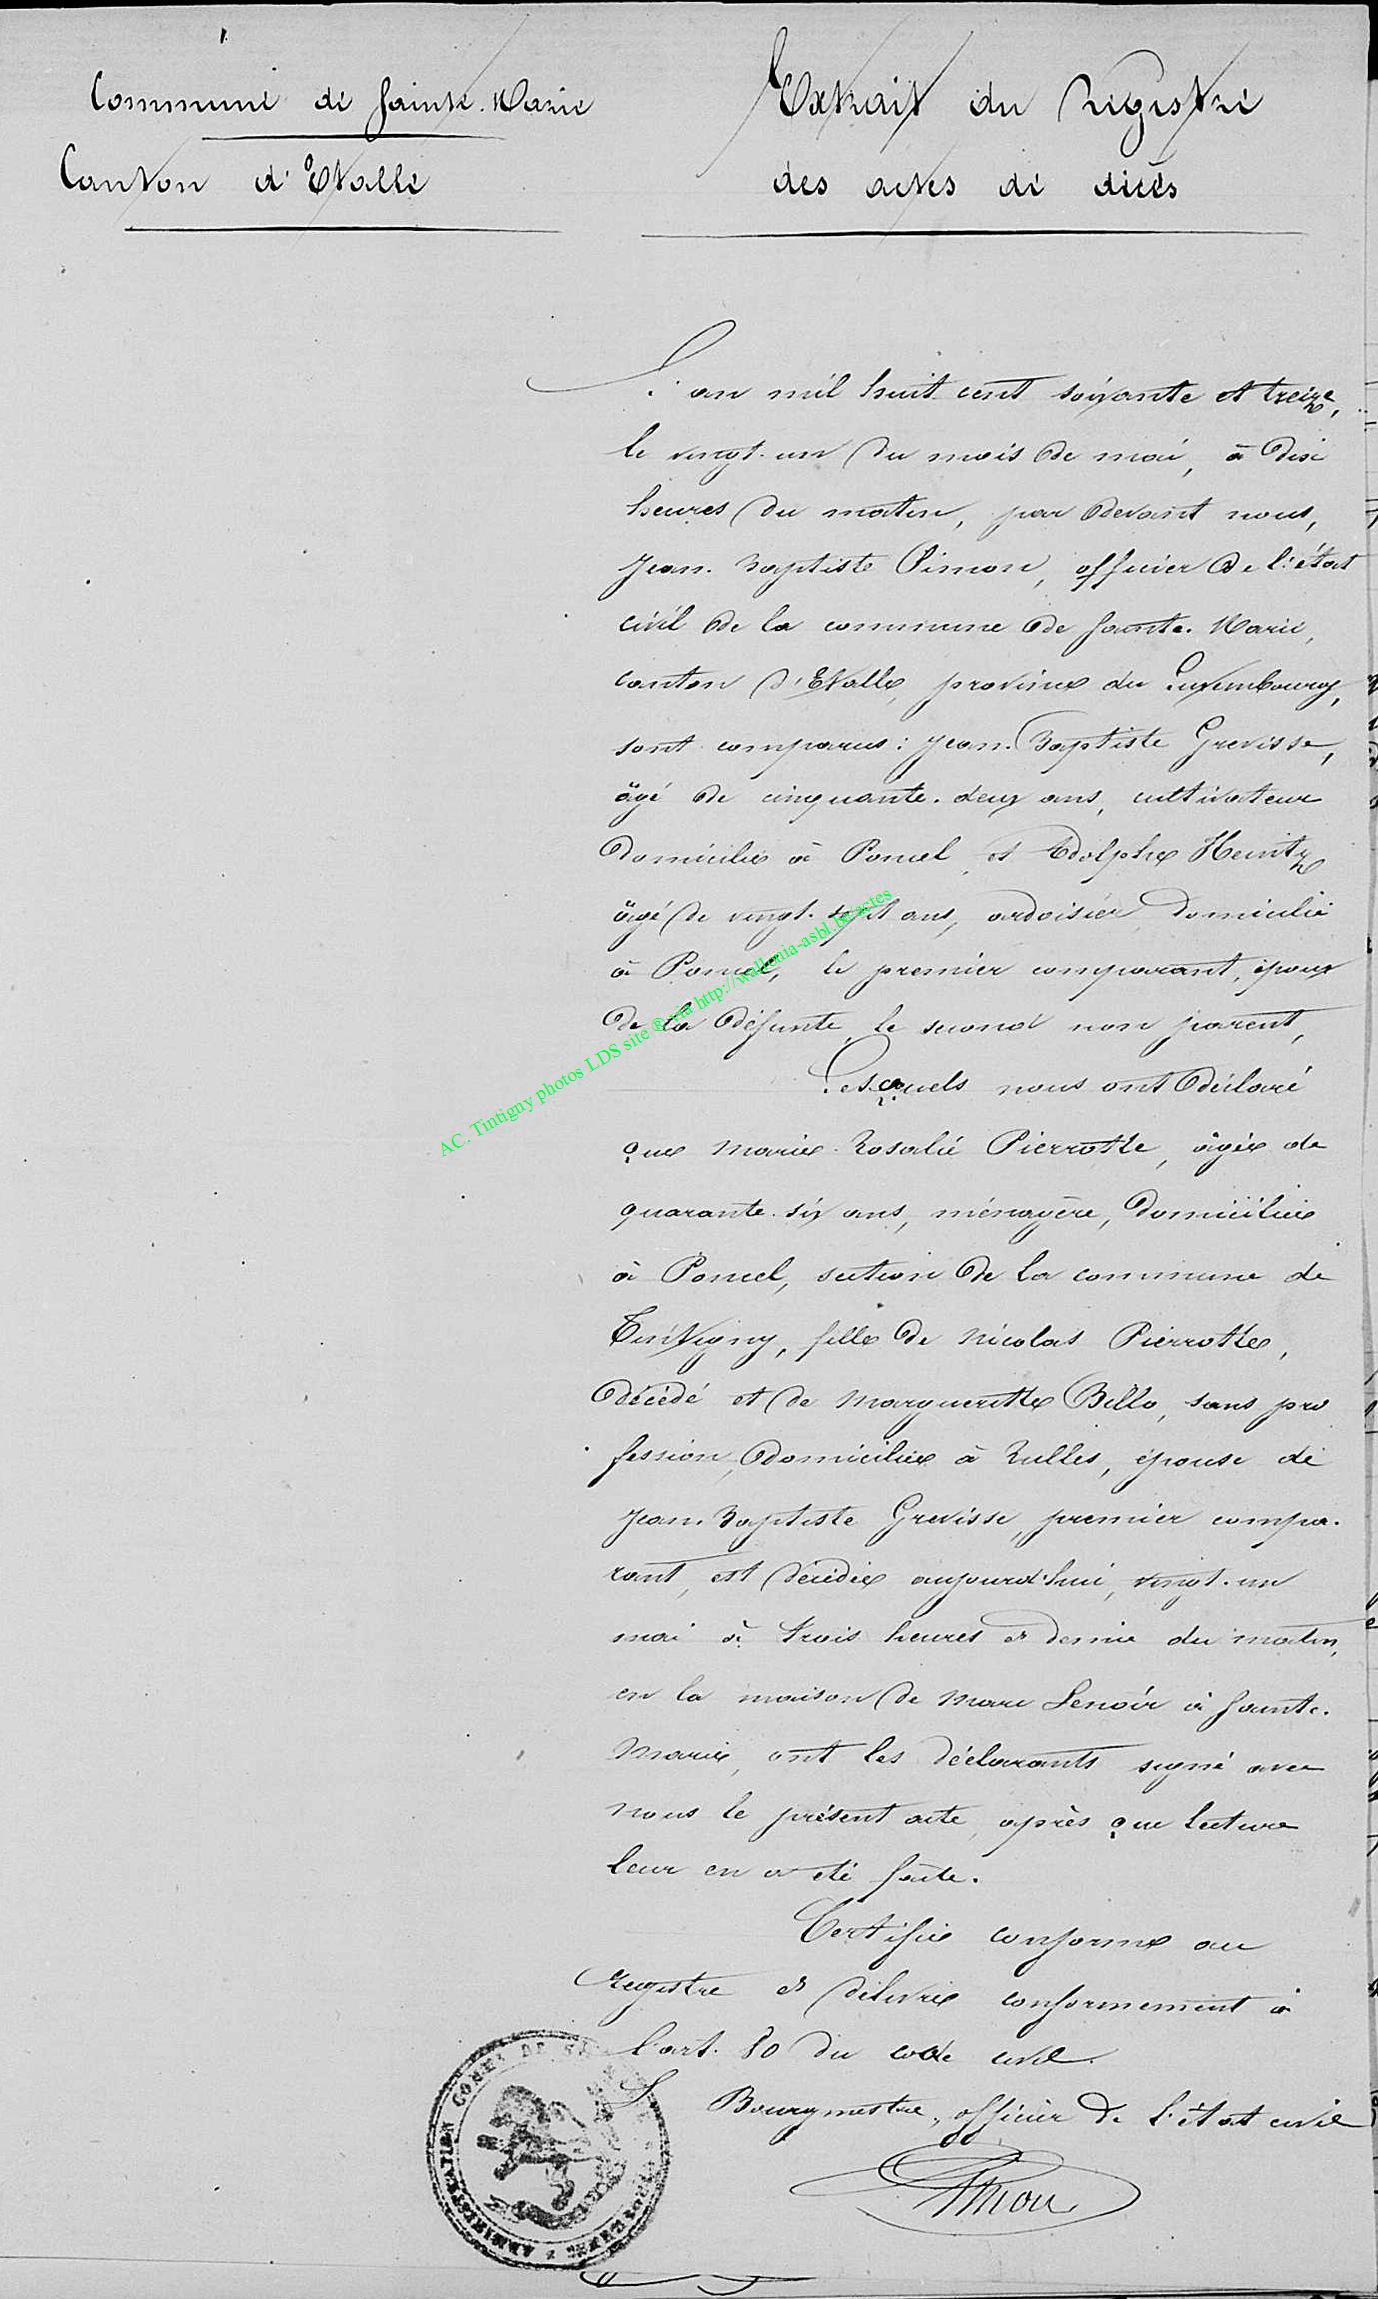 Commune de Sainte-Marie
Canton d'Etalle
Extrait du Registre
des actes de décès
L'an mil huit cent soixante et treize,
le vingt-un du mois de mai, à dix
heures du matin, par devant nous,
Jean-Baptiste Simon, officier de l'état
civil de la commune de Sainte-Marie,
canton d'Etalle, province du Luxembourg,
sont comparus: Jean-Baptiste Grevisse,
âgé de cinquante-deux ans, cultivateur
domicilié à Poncel, et Adolphe Heintz
âgé de vingt-sept ans, ardoisier domicilié
à Poncel, le premier comparant, époux
de la défunte, le second non parent,
Lesquels nous ont déclaré
que Marie-Rosalie Pierrotte, âgée de
quarante-six ans, ménagère, domiciliée
à Poncel, section de la commune de
Tintigny, fille de Nicolas Pierrotte,
décédé et de Margueritte Billo, sans pro
fession, domiciliée à Rulles, épouse de
Jean-Baptiste Grevisse, premier compa-
rant, est décédée aujourd'hui, vingt-un
mai à trois heures et demie du matin,
en la maison de Marc Lenoir à Sainte-
Marie, ont les déclarants signé avec
nous le présent acte, après que lecture
leur en a été faite.
Certifié conforme au
registre et délivré conformément à
l'art. 80 du code civil.
Le Bourgmestre, officier de l'état civil
Simon
ADMINISTRATION COMM. DE
AC. Tintigny photos LDS site ® via http://wallonia-asbl.be/actes